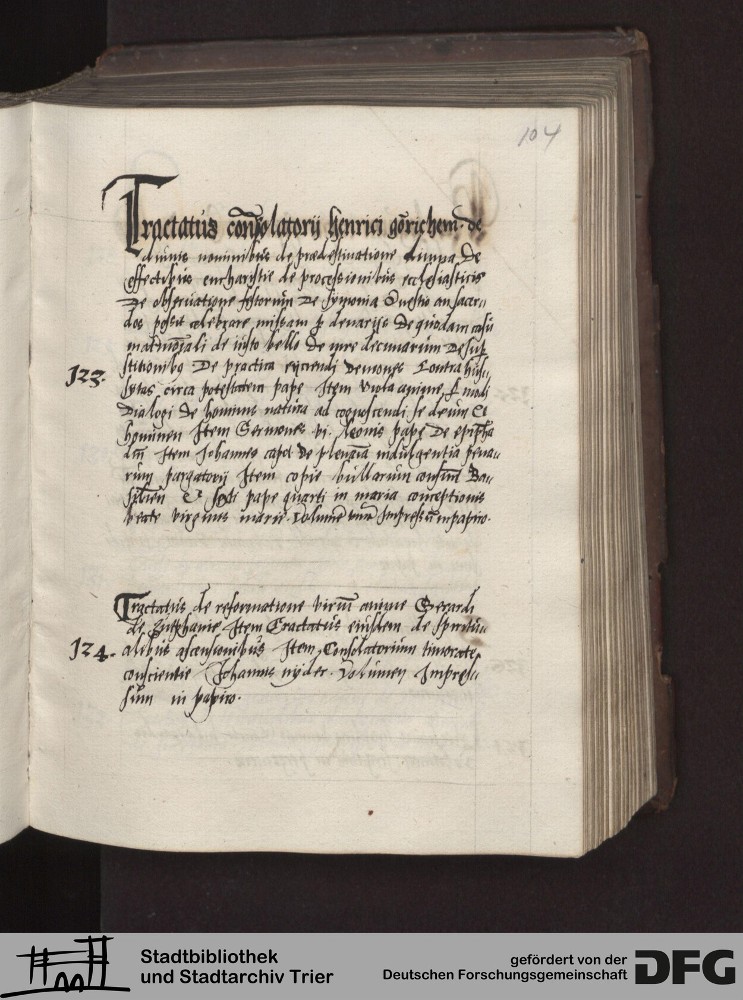 104
Tractatus consolatorij henrici gorichem. de
diuinis nominibus de praedestinatione diuina De
effectibus eucharistie de processionibus ecclesiasticis
De obseruatione festorum De symonia Questio an sacer-
dos possit celebrare missam p denarijs De quodam casu
matrimoniali de iusto bello De iure decimarum De sup
stitionibus De practica eijciendi Demones Contra huss-
123.
sitas circa potestatem pape Item viola anime p modū
Dialogi De hominis natura ad cognoscendū se deum Et
hominem Item Sermones Leonis pape De epipha
Item Iohannes de plenaria indulgentia pena-
rum purgatorij Item copie bullarum Ba-
silien Et pape quarti in maria conceptionis
beate virginis marie. volumen vnū Impressū in papiro.
Tractatus de reformatione virium anime Gerardi
de Zutphanie Item Tractatus eiusdem de spiritu-
124.
alibus ascensionibus Item Consolatorium timorate
conscientie Iohannis nyder. Volumen Impres-
sum in papiro.
Stadtbibliothek
und Stadtarchiv Trier
gefördert von der
Deutschen Forschungsgemeinschaft
DFG